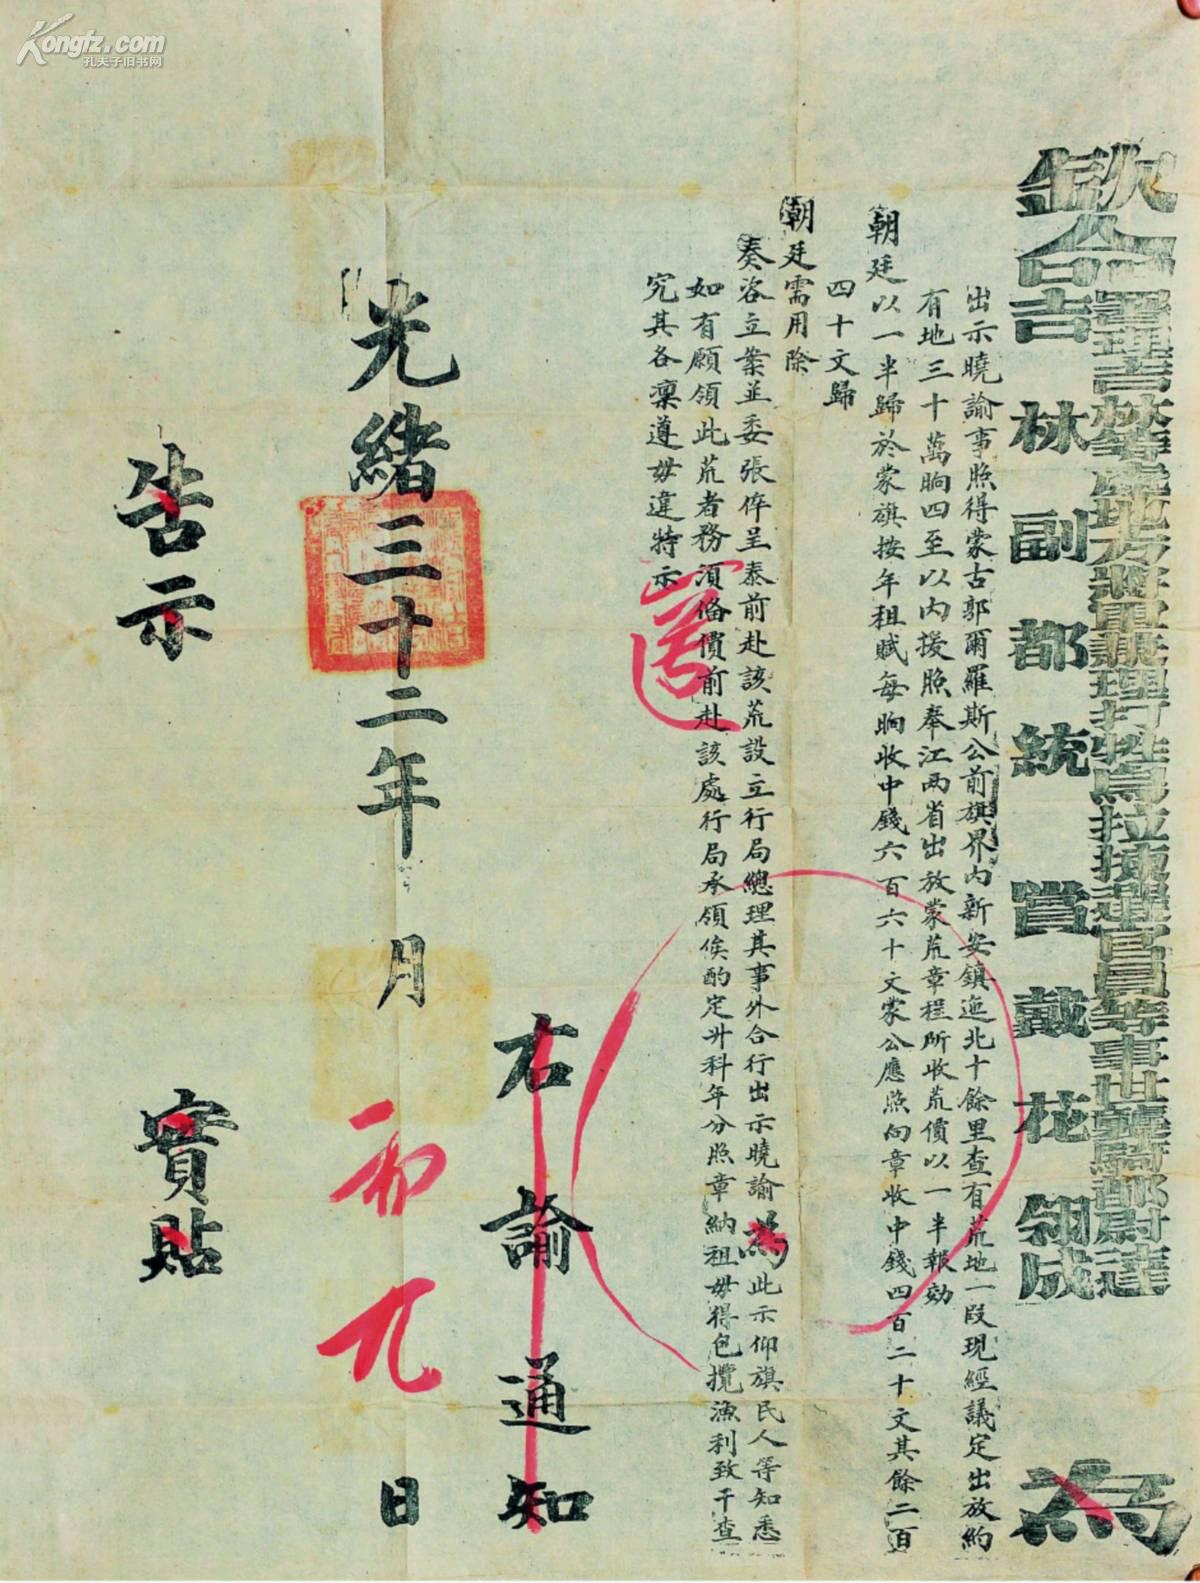 欽命署理吉林等處地方將軍兼理打牲烏拉揀選官員等事世襲騎都尉達
吉林副都統賞戴花翎成
為
出示曉諭事照得蒙古郭爾羅斯公前旗界內新安鎮迤北十餘里查有荒地一段現經議定出放約
有地三十萬晌四至以內援照奉江兩省出放蒙荒章程所收荒價以一半報効
朝廷以一半歸於蒙旗按年租賦每晌收中錢六百六十文蒙公應照向章收中錢四百二十文其餘二百
四十文歸
朝廷需用除
奏咨立案並委張倅呈泰前赴該荒設立行局總理其事外合行出示曉諭為此示仰旗民人等知悉
如有願領此荒者務須偹價前赴該處行局承領俟酌定升科年分照章納租毋得包攬漁利致干查
究其各凜遵毋違特示
遵
右諭通知
光緒三十二年 月 日
告示
實貼
Kongfz.com
孔夫子旧书网